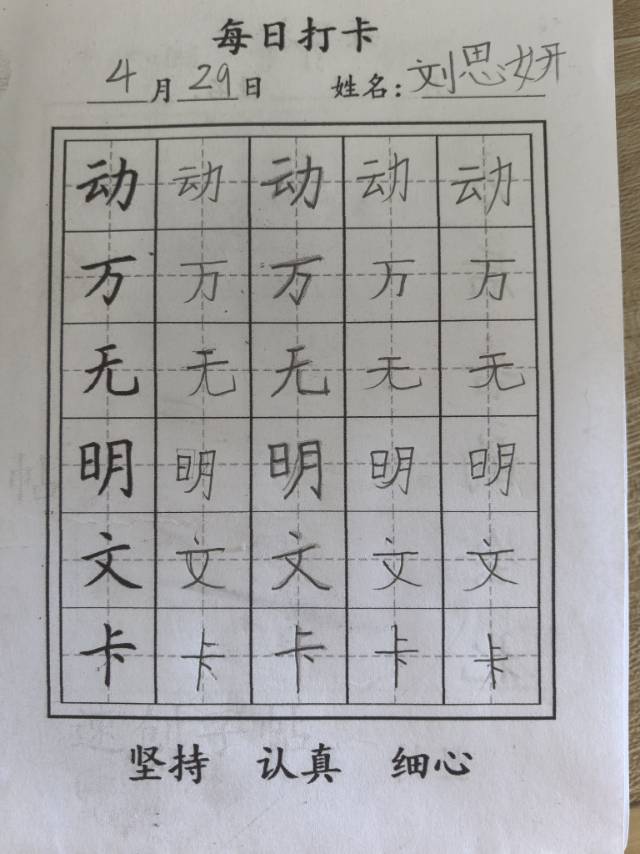 每日打卡
4月29日 姓名：刘思妍
动 动 动 动 动
万 万 万 万 万
无 无 无 无 无
明 明 明 明 明
文 文 文 文 文
卡 卡 卡 卡 卡
坚持 认真 细心